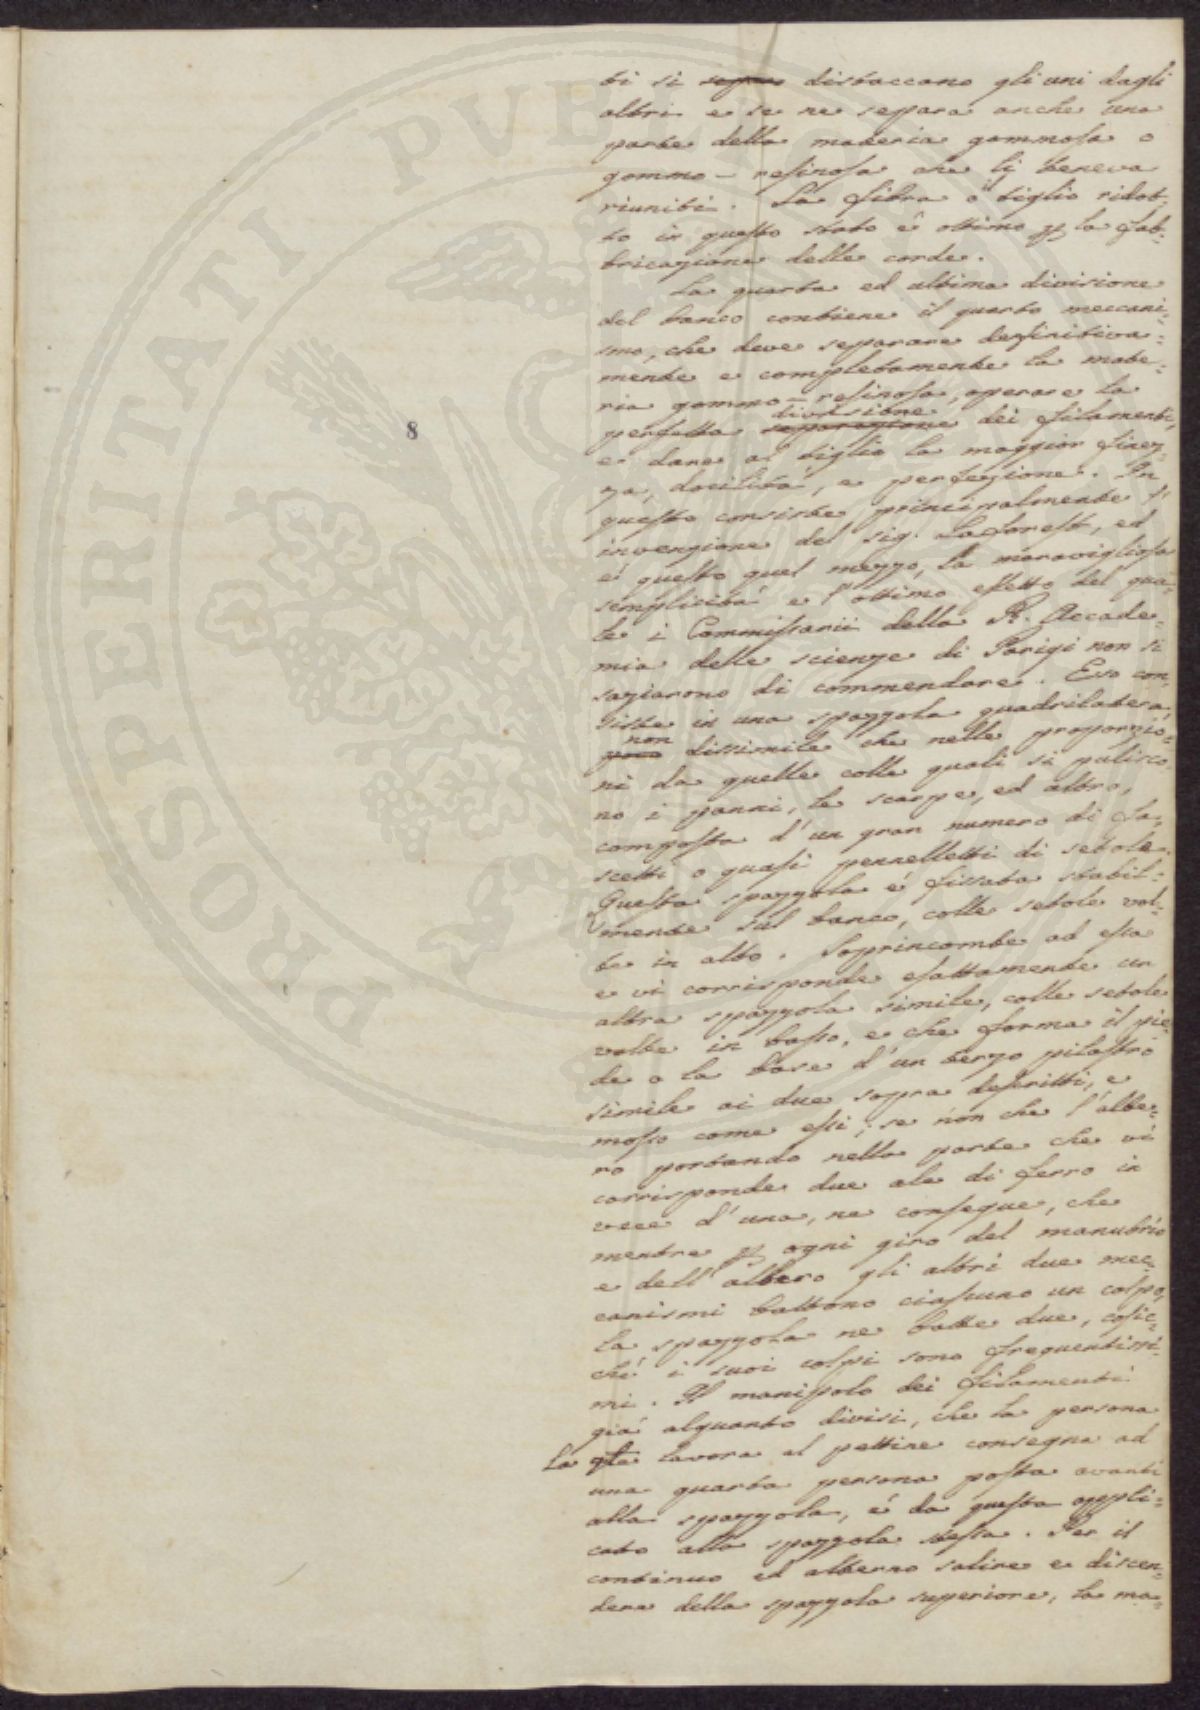 ti si ~~separa~~ distaccano gli uni dagli
altri e se ne separa anche una
parte della materia gommosa o
gommo-resinosa che li teneva
riuniti. La fibra o tiglio ridot-
to in questo stato è ottimo p la fab-
bricazione delle corde.
La quarta ed ultima divisione
del banco contiene il quarto meccani-
smo, che deve separare definitiva-
mente e completamente la mate-
ria gommo-resinosa, operare la
divisione
perfetta ~~separazione~~ dei filamenti,
e dare al tiglio la maggior finez-
za, docilità, e perfezione. In
questo consiste principalmente l'
invenzione del sig. Laforest, ed
è questo quel mezzo, la maravigliosa
semplicità e l'ottimo effetto del qua-
le i Commissarii della R. Accade-
mia delle scienze di Parigi non si
saziarono di commendare. Esso con-
siste in una spazzola quadrilatera
non
~~poco~~ dissimile che nelle proporzio-
ni da quelle colle quali si pulisco-
no i panni, le scarpe, ed altro,
composta d'un gran numero di fa-
scetti o quasi pennelletti di setole.
Questa spazzola è fissata stabil-
mente sul banco, colle setole vol-
te in alto. Soprincombe ad essa
e vi corrisponde esattamente un
altra spazzola simile, colle setole
volte in basso, e che forma il pie-
de o la base d'un terzo pilastro
simile ai due sopra descritti, e
mosso come essi; se non che l'albe-
ro portando nella parte che vi
corrisponde due ale di ferro in
vece d'una, ne consegue, che
mentre p ogni giro del manubrio
e dell'albero gli altri due mec-
canismi battono ciascuno un colpo,
la spazzola ne batte due, cosic-
chè i suoi colpi sono frequentissi-
mi. Il manipolo dei filamenti
già alquanto divisi, che la persona
la qle lavora al pettine consegna ad
una quarta persona posta avanti
alla spazzola, è da questa appli-
cato alla spazzola stessa. Per il
continuo ed alterno salire e discen-
dere della spazzola superiore, la ma-
8
PROSPERITATI PVBLI